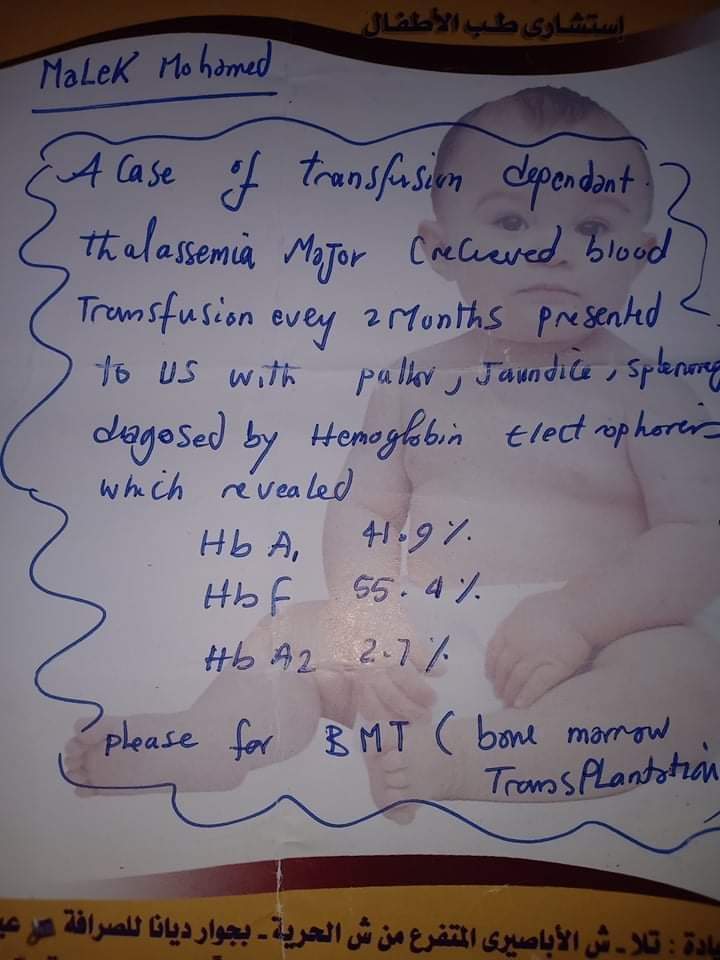 إستشارى طب الأطفال
Malek Mohamed
A Case of transfusion dependant
thalassemia Major (recieved blood
Transfusion evey 2 Months presented
to US with pallor, Jaundice, spleno
diagosed by Hemoglobin Electrophoresis
which revealed
Hb A1 41.9 %
Hb F 55.4 %
Hb A2 2.7 %
please for BMT ( bone marrow
TransPlantation
تلا - ش الأباصيرى المتفرع من ش الحرية - بجوار ديانا للصرافة